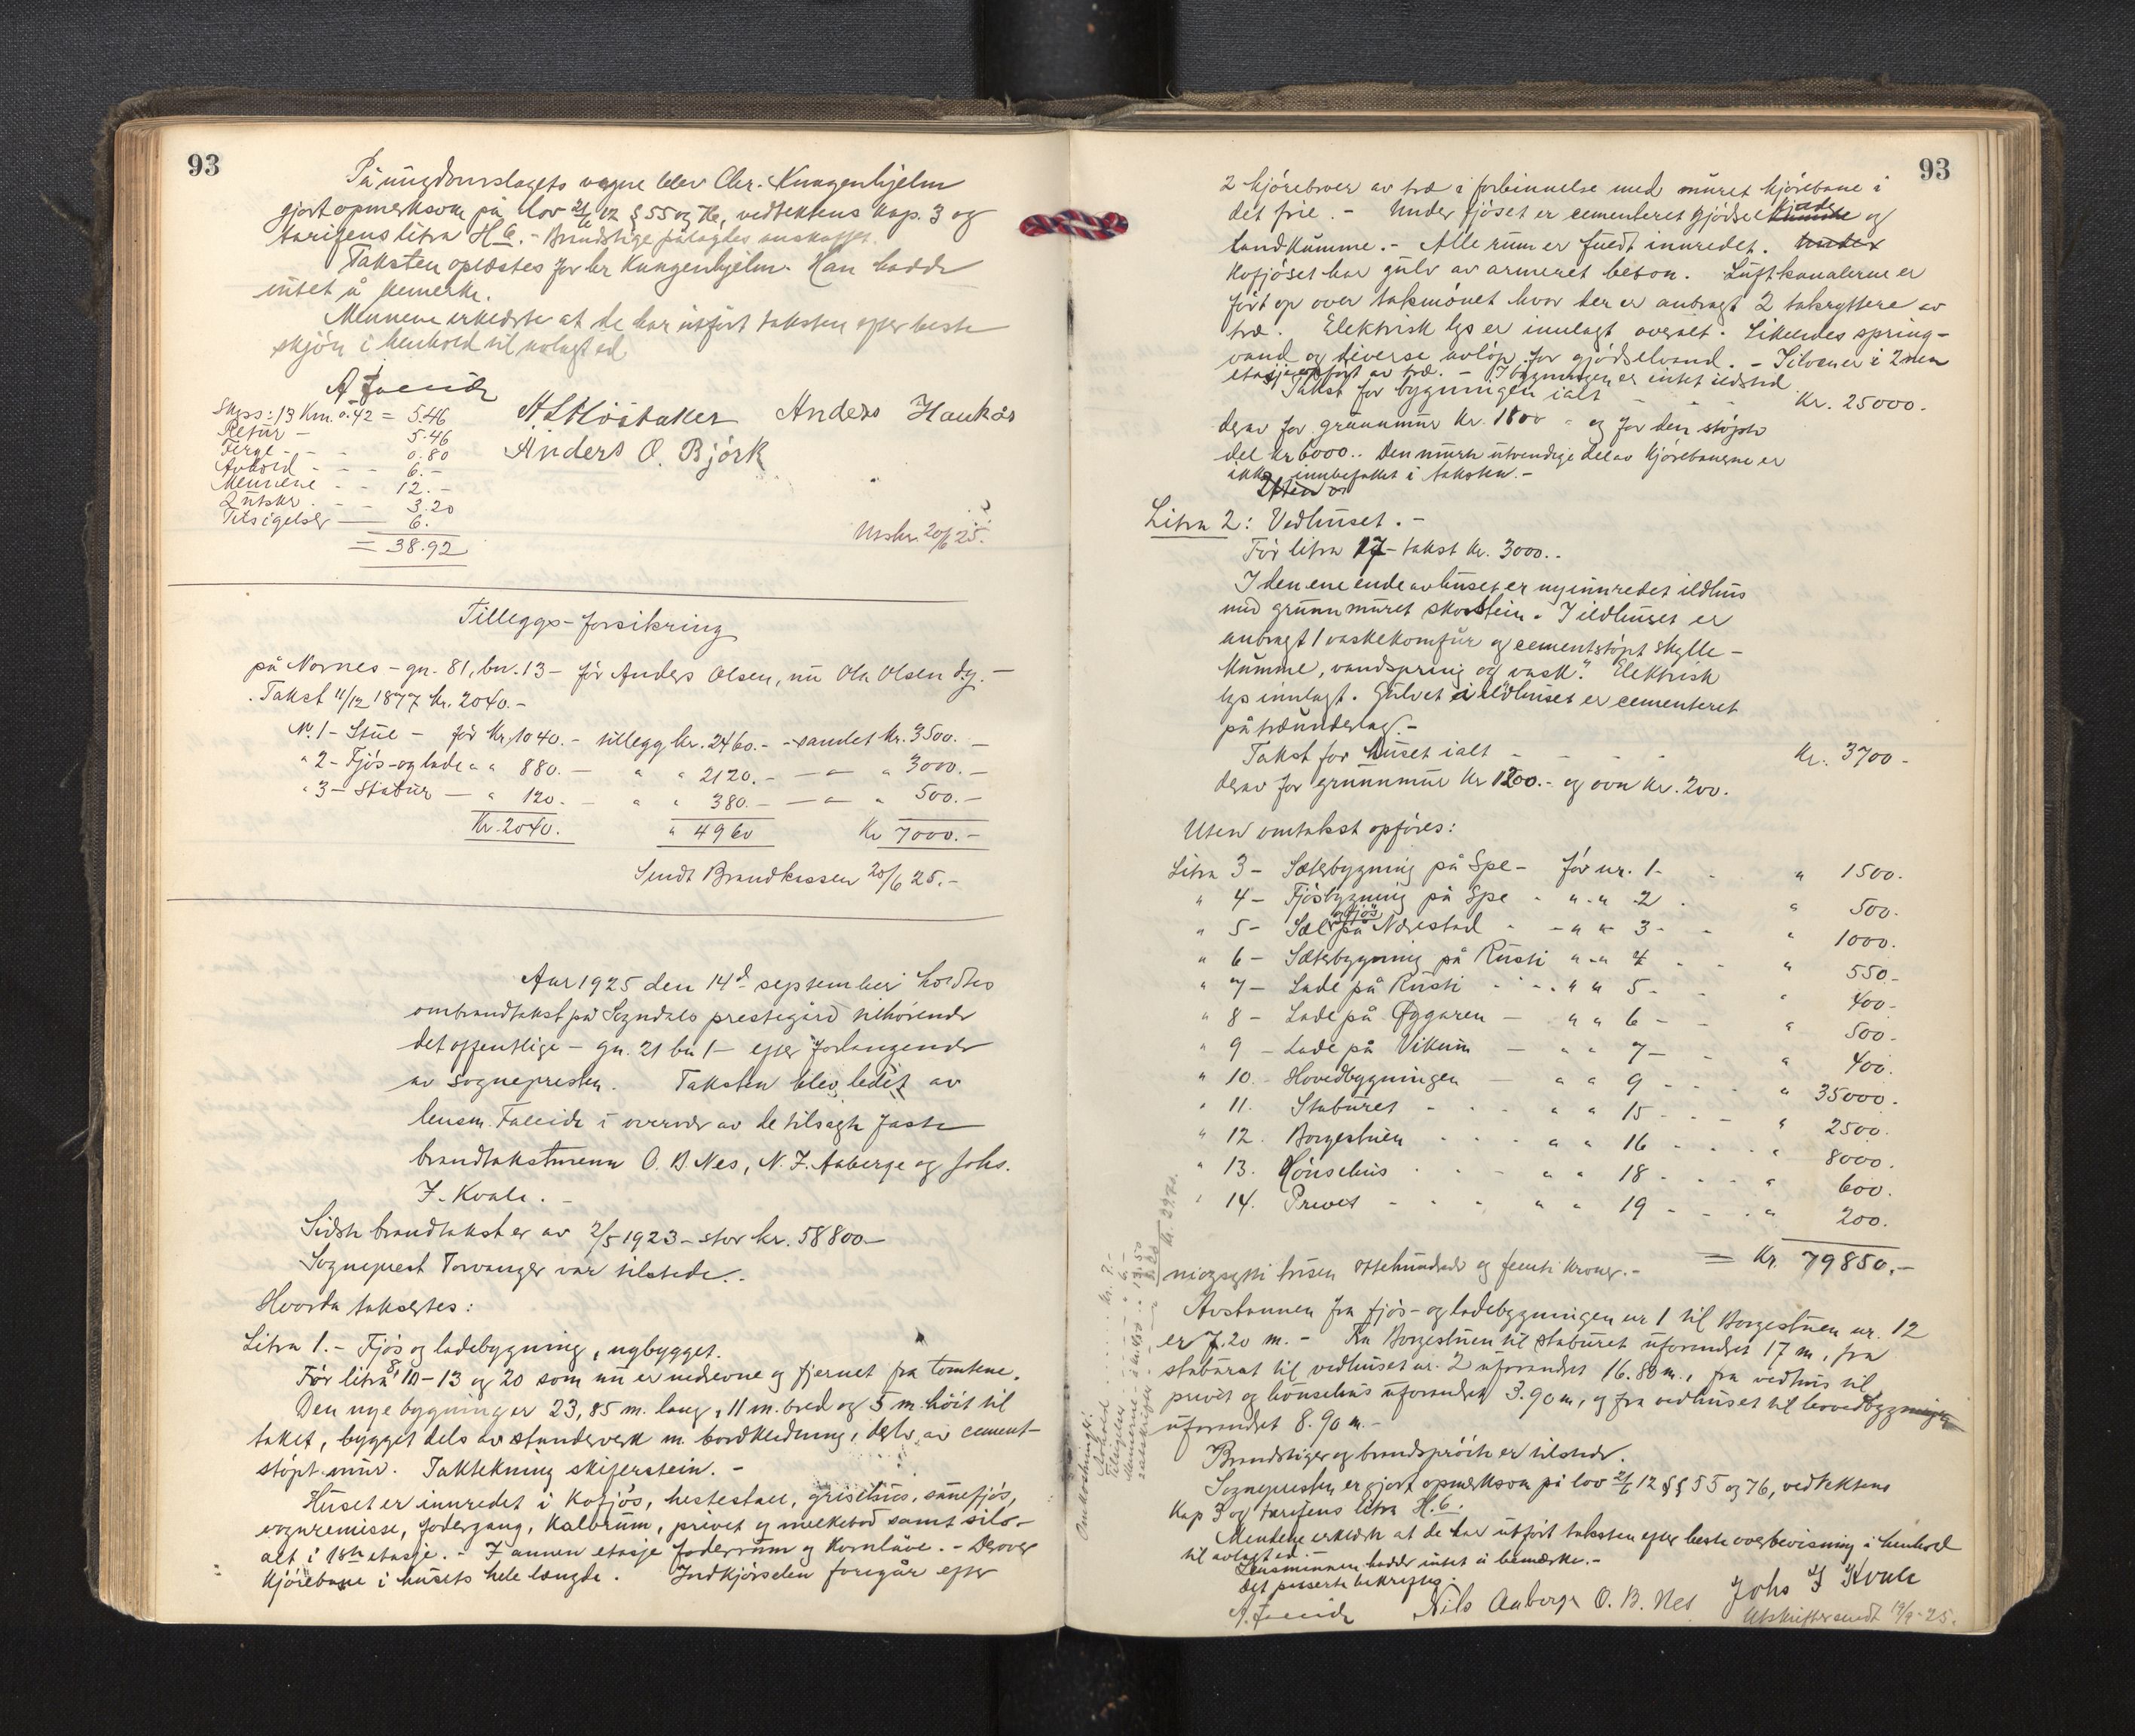 93
På ungdomslagets vegne blev Chr. Kungenhjelm
gjort opmerksom på lov 21/6 12 § 55 og 76, vedtektens kap. 3 og
tarifens litra H 6. - Brandstige pålagdes anskaffet.
Taksten oplæstes for hr Kungenhjelm. Han hadde
intet å bemerke.
Mennene erklærte at de har utført taksten efter beste
skjön i henhold til avlagt ed
A Faleide
A L Höstaker Anders Haukås
Anders O. Björk
Skyss: 13 Km. à 42 = 5.46
Retur - 5.46
Ferge - - - 0.80
Avhold - - - 6.-
Mennene - - 12.-
2 utskr. - - 3.20
Tilsigelser - 6.
= 38.92
Utskr. 20/6 25.
Tilleggs-forsikring
på Nornes - gn. 81, bn. 13 - för Anders Olsen, nu Ola Olsen d.y. -
Takst 11/12 1877 kr. 2040.-
No. 1 - Stue - för kr. 1040.- tillegg kr. 2460.- - samlet kr. 3500. -
" 2 - Fjös- og lade " " 880.- " " 2120.- - " - " 3000.-
" 3 - Stabur - " 120.- " " 380.- - " - " 500.-
Kr. 2040. " 4960 Kr 7000.-
Sendt Brandkassen 20/6 25.-
Aar 1925 den 14de september holdtes
ombrandtakst på Sogndals prestegård tilhörende
det offentlige - gn. 21 bn 1 - efter forlangende
av sognepresten. Taksten blev ledet av
lensm. Faleide i overvær av de tilsagte faste
brandtakstmenn O. B. Nes, N. J. Aaberge og Johs.
J. Kvale. -
Sidste brandtakst er av 2/5 1923 - stor kr. 58800-
Sogneprest Torvanger var tilstede. -
Hvorda taksertes:
Litra 1. - Fjös og ladebygning, nybygget.
För litra 8, 10 - 13 og 20 som nu er nedrevne og fjernet fra tomtene.
Den nye bygning er 23,85 m. lang, 11 m. bred og 5 m. höit til
taket, bygget dels av stenderverk m. bordkledning, dels av cement-
stöpt mur. Taktekning skiferstein. -
Huset er innredet i kofjös, hestestall, grisehus, sauefjös,
vognremisse, fodergang, kalvrum, privet og melkebod samt silo -
alt i 1ste etasje. - I annen etasje foderrum og kornlåve. - Derover
kjörebane i husets hele lengde. Indkjörselen foregår efter
93
2 kjörebroer av træ i forbinnelse med muret kjörebane i
det frie. - Under fjöset er cementeret gjödselkjeller og
landkumme. - Alle rum er fuldt innredet. Under
Kofjöset har gulv av armeret beton. Luftkanalerne er
fört op over takmönet hvor der er anbragt 2 takryttere av
træ. Elektrisk lys er innlagt overalt. Likeledes spring-
vand og diverse avlöp for gjödselvand. - Siloen er i 2nen
etasje opfört av træ. - I bygningen er intet ildsted
Takst for bygningen ialt - - - Kr. 25000.
derav for grunnmur kr. 1800 - og for den stöpte
del kr 6000.. Den murte utvendige del av kjörebanerne er
ikke innbefattet i taksten. -
Litra 2: Vedhuset. -
För litra 17 - takst kr. 3000..
I den ene ende av huset er nyinnredet ildhus
med grunnmuret skorstein. I ildhuset er
anbragt 1 vaskekomfur og cementstöpt skylle-
kumme, vandspring og vask. Elektrisk
lys innlagt. Gulvet i ildhuset er cementeret
på træunderlag. -
Takst for huset ialt - - - Kr. 3700 -
derav for grunnmur kr 1200.- og ovn kr. 200.
Uten omtakst opföres:
Litra 3 - Sæterbygning på Spe - för nr. 1 - " 1500.
" 4 - Fjösbygning på Spe - " - " 2 . " 500.
" 5 - Sel og fjös på Nærestad - - " " 3 - " 1000.
" 6 - Sæterbygning på Rusti " - " 4 - " 550.-
" 7 - Lade på Rusti - - " " 5 - " 400.-
" 8 - Lade på Öygaren - " " 6 - " 500.-
" 9 - Lade på Vikum - " " 7 - " 400.
" 10. Hovedbygningen - " " 9 - " 35000.-
" 11. Staburet - - " " 15 - " 2500.
" 12. Borgestuen - - " " 16 - " 8000.
" 13. Hönsehus - - " " 18 - " 600.
" 14. Privet - - " " 19 - " 200.
= Kr. 79850.-
niogsytti tusen ottehundrede og femti kroner. -
Avstannen fra fjös- og ladebygningen nr 1 til Borgestuen nr. 12
er 7.20 m. - Fra Borgestuen til staburet uforandret 17 m, fra
staburet til vedhuset nr. 2 uforandret 16.80 m., fra vedhus til
privet og hönsehus uforandret 3.90 m, og fra vedhuset til hovedbygningen
uforandret 8.90 m. -
Brandstiger og brandspröite er tilstede.
Sognepresten er gjort opmerksom på lov 21/6 12 §§ 55 og 76, vedtektens
Kap 3 og tarifens litra H. 6.
Mennene erklærte at de har utfört taksten efter beste overbevisning i henhold
til avlagt ed.
Lensmannen hadde intet å bemærke. -
Det passerte bekreftes:
A. Faleide Nils Aaberge O. B. Nes Johs J Kvale
Utskrifter sendt 19/9 - 25.
Omkostninger:
Avhold - - - kr. 9.-
Tilsigelser - - - 6.-
Mennene
2 utskrifter